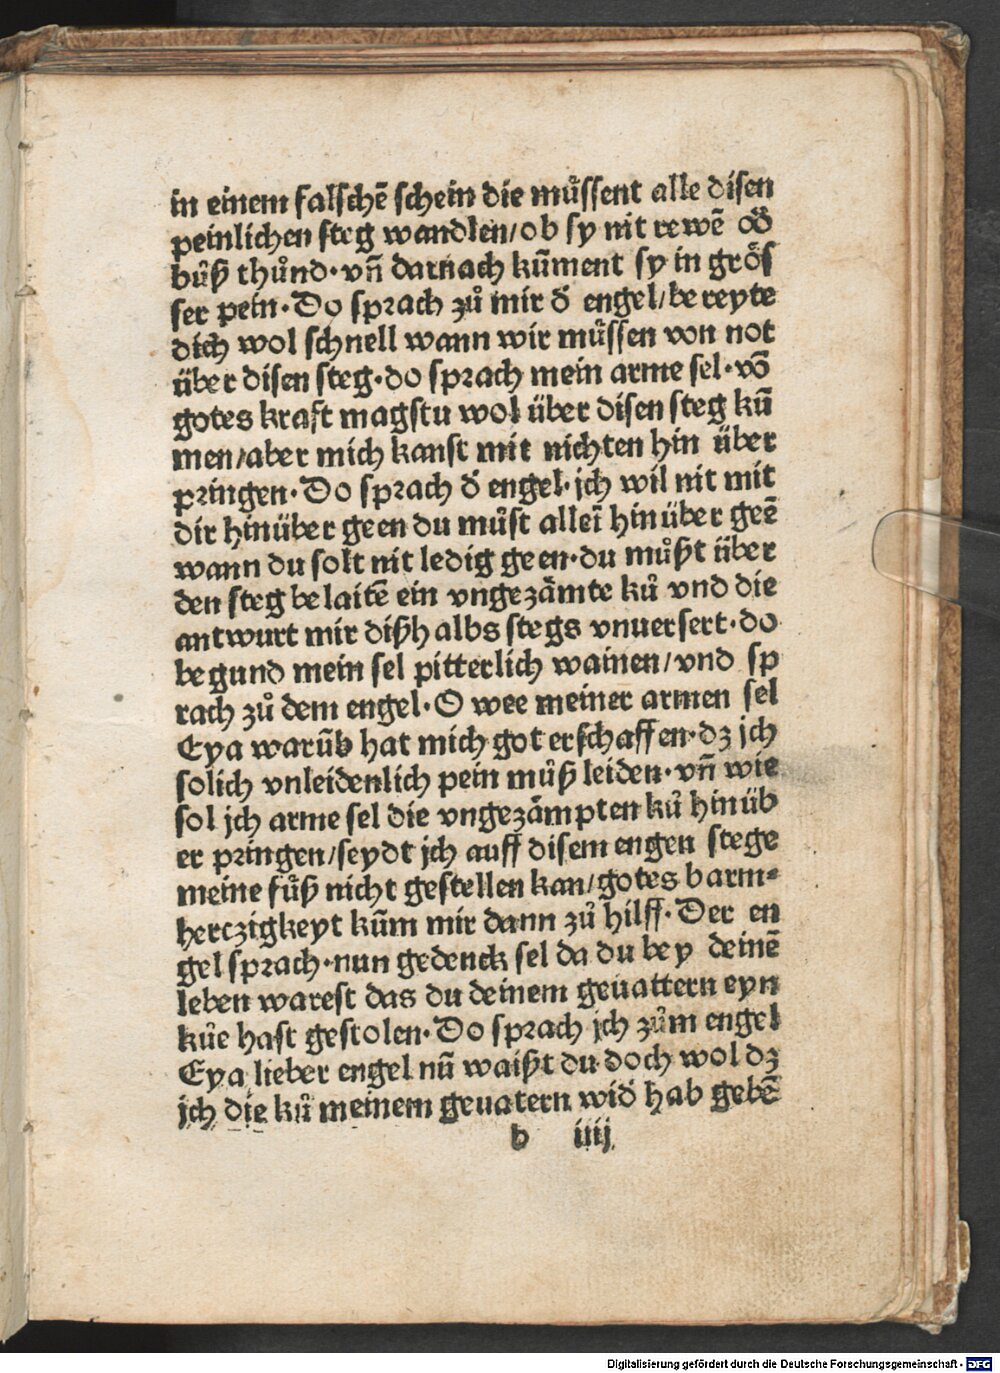 in einem falschē schein die mu̇ssent alle disen
peinlichen steg wandlen/ob sy nit rewē od̄
bůß thůnd·vn̄ darnach kūment sy in grȯs
ser pein·Do sprach zů mir d̄ engel/bereyte
dich wol schnell wann wir mu̇ssen von not
über disen steg·do sprach mein arme sel·vō
gotes kraft magstu wol über disen steg kū
men/aber mich kanst mit nichten hin über
pringen·Do sprach d̄ engel·jch wil nit mit
dir hinüber geen du můst alleī hinüber geē
wann du solt nit ledig geen·du můßt über
den steg belaitē ein vngezämte ků vnd die
antwurt mir dißhalbs stegs vnuersert·do
begund mein sel pitterlich wainen/vnd sp
rach zů dem engel·O wee meiner armen sel
Eya warūb hat mich got erschaffen·dz jch
solich vnleidenlich pein můß leiden·vn̄ wie
sol jch arme sel die vngezämpten ků hinüb
er pringen/seydt jch auff disem engen stege
meine fu̇ß nicht gestellen kan/gotes barm⸗
herczigkeyt kūm mir dann zů hilff·Der en
gel sprach·nun gedenck sel da du bey deinē
leben warest das du deinem geuattern eyn
kůe hast gestolen·Do sprach jch zům engel
Eya lieber engel nū waißt du doch wol dz
jch die ků meinem geuatern wid̄ hab gebē
b iiij
Digitalisierung gefördert durch die Deutsche Forschungsgemeinschaft - DFG